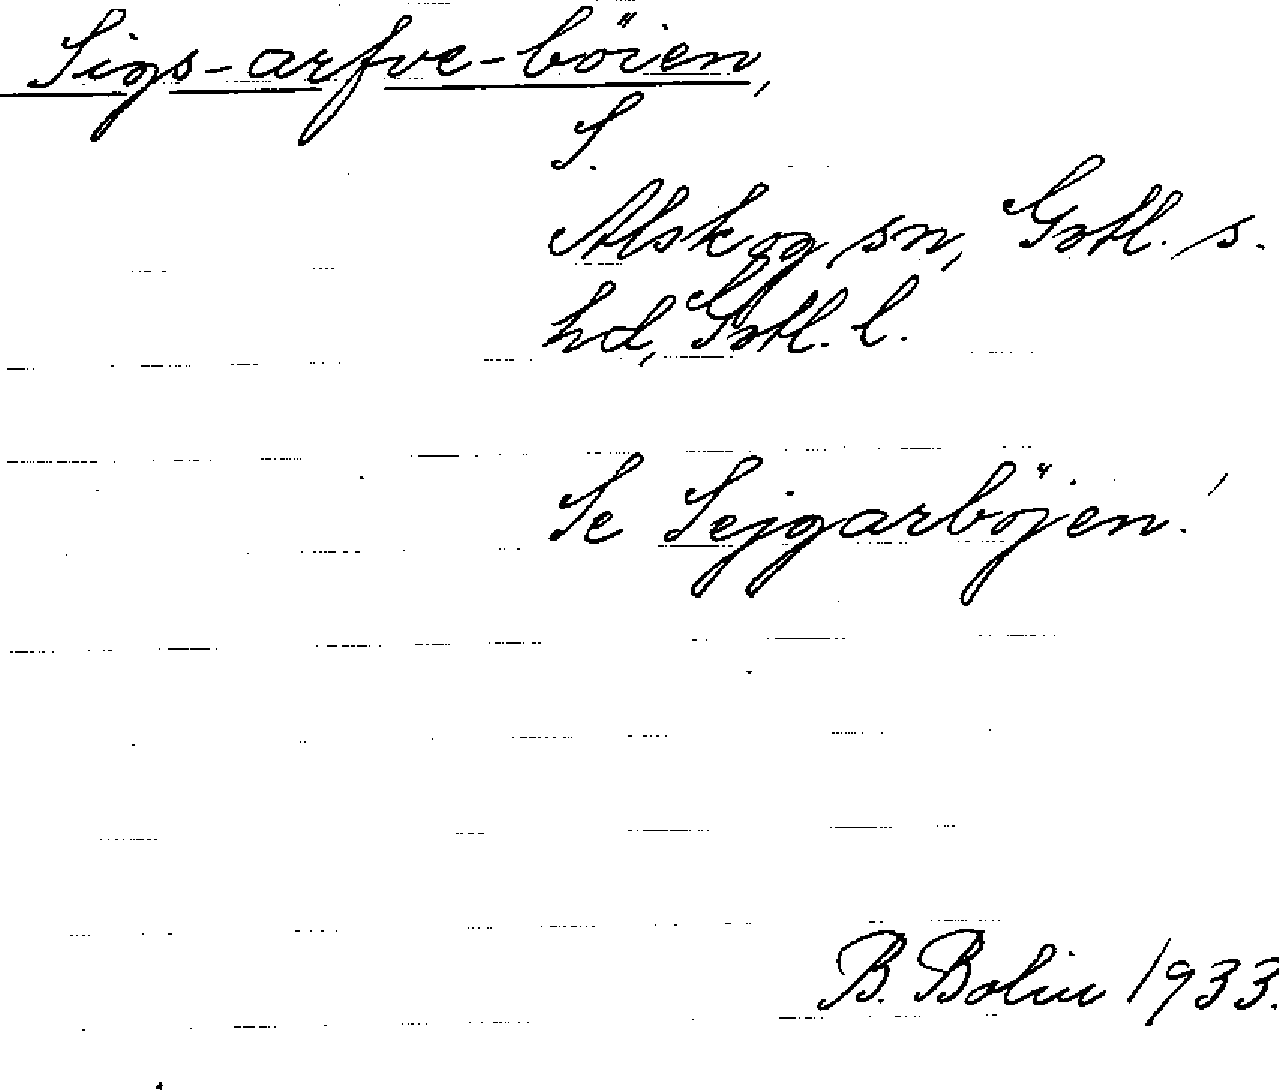 Sigs-arfve-böien,
S.
Alskog sn, Gotl. s.
hd, Gotl. l.
Se Sejgarböjen!
B. Bolin 1933.